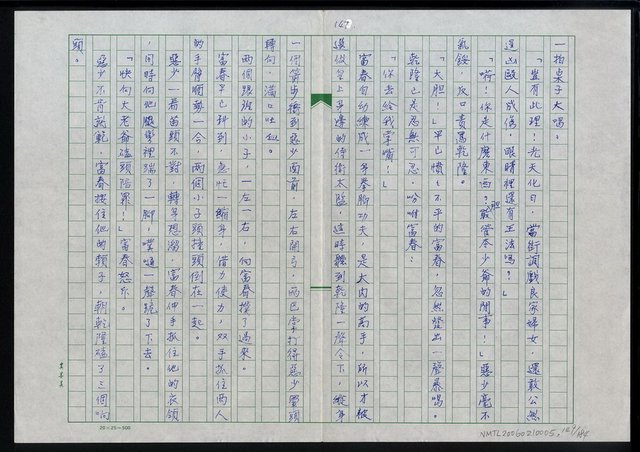 147.
一拍桌子大喝。
「豈有此理!光天化日,當街調戲良家婦女,還敢公然
逞凶毆人成傷,眼睛裡還有王法嗎?」
「嗬!你是什麼東西?敢管本少爺的閒事!」惡少毫不
氣餒,反口責罵乾隆。
「大胆!」早已憤憤不平的富春,忽然發出一聲暴喝。
乾隆已是忍無可忍,吩咐富春:
「你去給我掌嘴!」
富春自幼練成一身拳腳功夫,是大內的高手,所以才被
選做皇上身邊的侍衛太監,這時聽到乾隆一聲令下,縱身
一個箭步搶到惡少面前,左右開弓,兩巴掌打得惡少覺頭
轉向,滿口吐血。
兩個跟班的小子,一左一右,向富春撲了過來。
富春早已料到,急忙一縮身,借力使力,双手抓住兩人
的手臂順勢一合,兩個小子頭撞頭倒在一起。
惡少一看苗頭不對,轉身想溜,富春伸手抓住他的衣領
,同時向他腿彎裡踹了一脚,噗嗵一聲跪了下去。
「快向大老爺磕頭陪罪!」富春怒斥。
惡少不肯就範,富春揑住他的頸子,朝乾隆磕了三個响
頭。
20×25=500
NMTL20060210005, 147/184